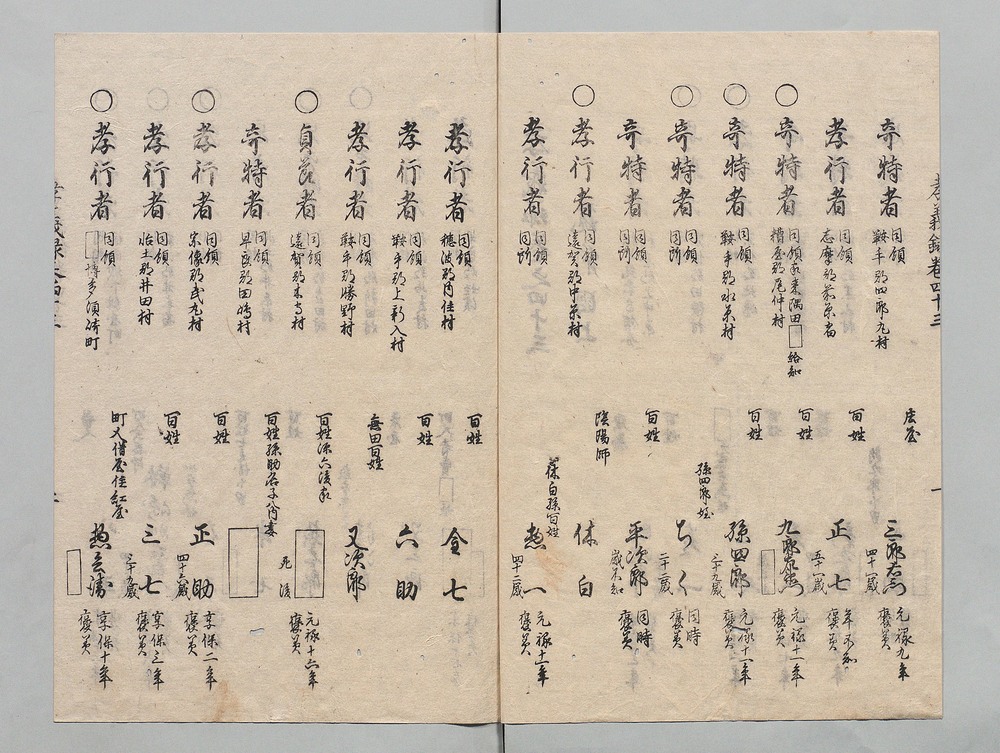 孝義録巻四十三
一
奇特者 同領 鞍手郡四郎丸村 庄屋 三郎右衛門 四十一歳 元禄九年 褒美
孝行者 同領 志摩郡 百姓 正七 五十一歳 年不知 褒美
○ 奇特者 同領家来隅田 給知 糟屋郡尾仲村 百姓 九郎左衛門 元禄十一年 褒美
○ 奇特者 同領 鞍手郡水原村 百姓 孫四郎 三十九歳 元禄十一年 褒美
○ 奇特者 同領 同所 孫四郎姪 ちく 二十二歳 同時 褒美
奇特者 同領 同所 百姓 平次郎 歳不知 同時 褒美
○ 孝行者 同領 遠賀郡中原村 陰陽師 休白
孝行者 同領 同所 休白孫百姓 惣一 四十二歳 元禄十一年 褒美
孝行者 同領 穂波郡内住村 百姓 金七
孝行者 同領 鞍手郡上新入村 百姓 六助
孝行者 同領 鞍手郡勝野村 無田百姓 又次郎
○ 貞節者 同領 遠賀郡 百姓 死後 元禄十六年 褒美
奇特者 同領 早良郡田嶋村 百姓孫助
○ 孝行者 同領 宗像郡武丸村 百姓 正助 四十六歳 享保二年 褒美
孝行者 同領 怡土郡井田村 百姓 三七 三十九歳 享保三年 褒美
○ 孝行者 同領 博多須崎町 町人借屋住紅屋 享保十年 褒美
孝義録巻四十三